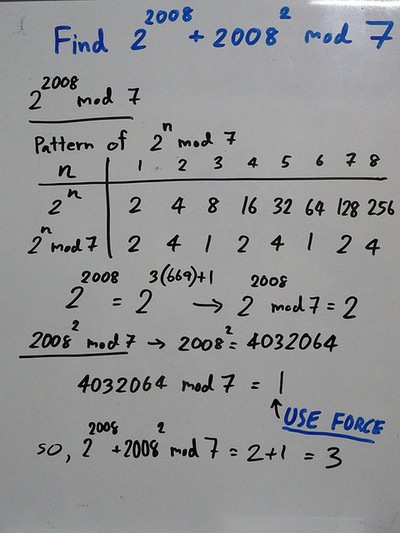 Find 2^2008 + 2008^2 mod 7
2^2008 mod 7
Pattern of 2^n mod 7
n 1 2 3 4 5 6 7 8
2^n 2 4 8 16 32 64 128 256
2^n mod 7 2 4 1 2 4 1 2 4
2^2008 = 2^3(669)+1 → 2^2008 mod 7 = 2
2008^2 mod 7 → 2008^2 = 4032064
4032064 mod 7 = 1
↑ USE FORCE
so, 2^2008 + 2008^2 mod 7 = 2+1 = 3